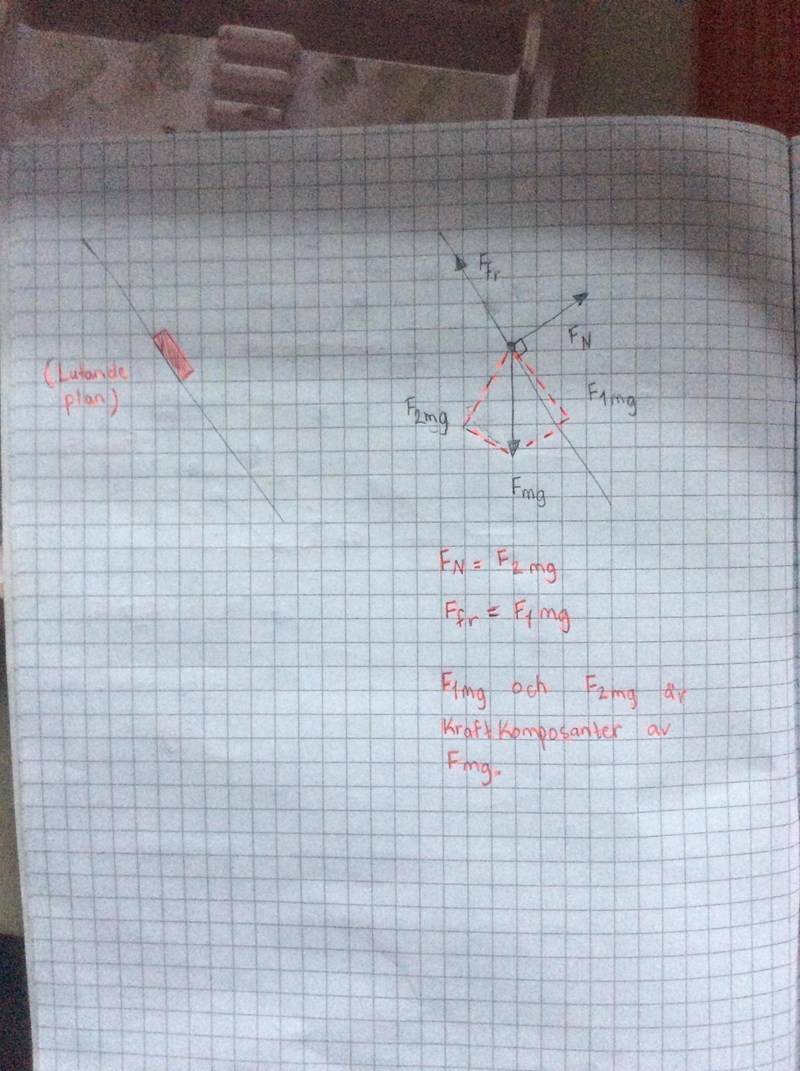 Ffr
FN
(Lutande
plan)
F1mg
F2mg
Fmg
FN = F2mg
Ffr = F1mg
F1mg och F2mg är
Kraftkomposanter av
Fmg.